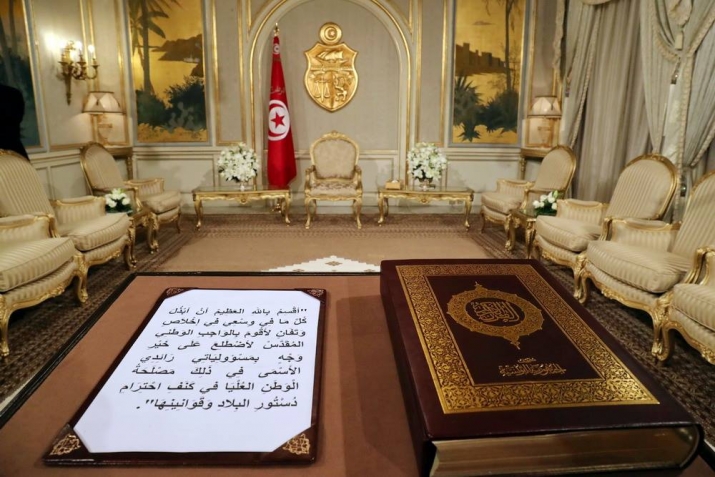 "أقْسَمُ بالله العظيم أنْ أبْذُل
كُلّ ما في وسْعي في إخْلاص
وتَفان لأقومَ بالواجب الوطني
المُقدّسْ لأضْطَلعَ على خيْر
وجْه بمسْؤولياتي رَائدي
الأسْمَى في ذلك مصْلَحَةُ
الْوطن العُلْيَا في كَنَف احْترام
دُسْتُور البلاد وقَوانينهَا".